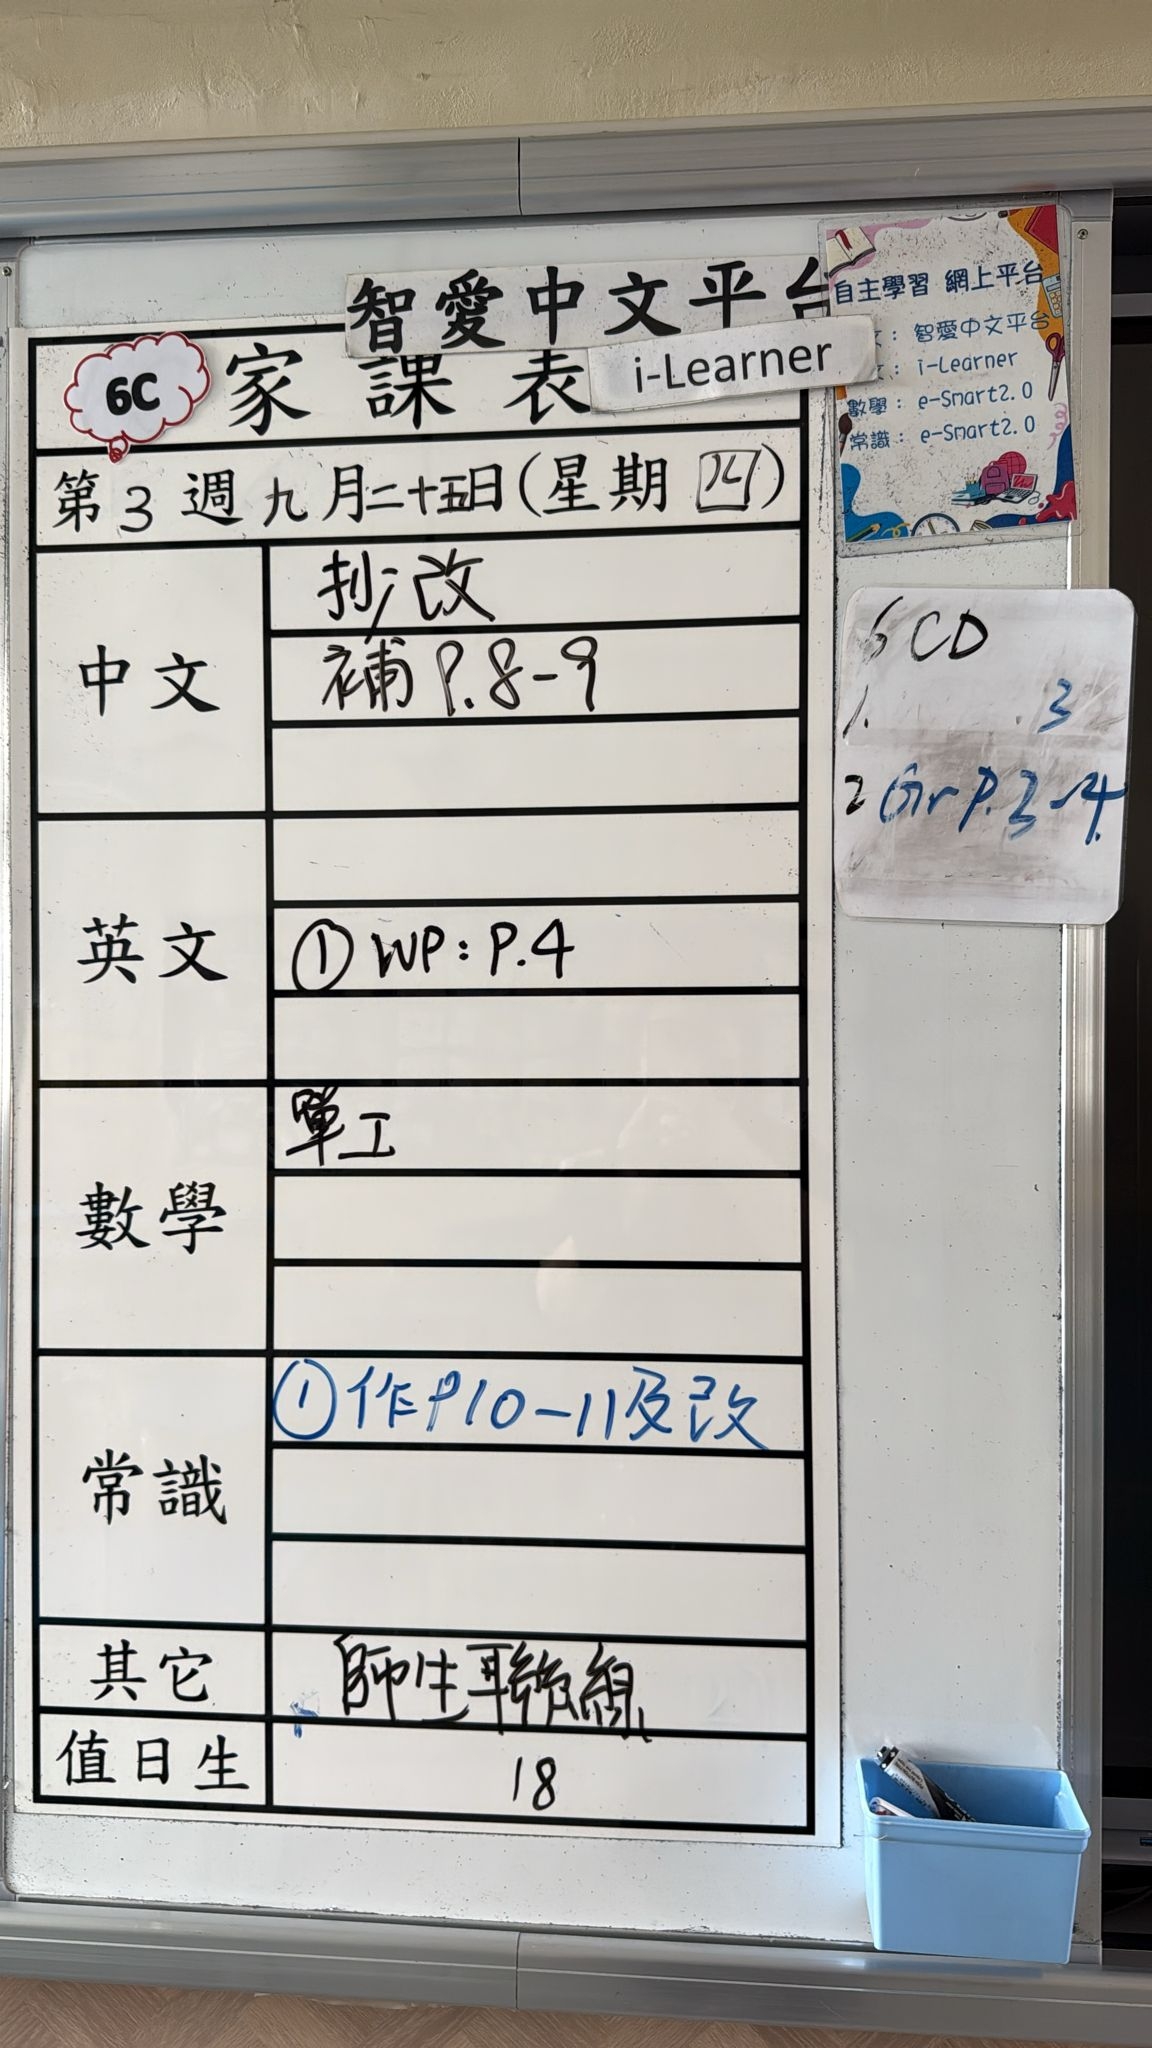 智愛中文平台
i-Learner
6C
家課表
第3週九月二十五日(星期四)
中文
抄改
補P.8-9
英文
① WP: P.4
數學
單工
常識
①作P10-11及改
其它
師生聯組
值日生
18
自主學習 網上平台
: 智愛中文平台
: i-Learner
數學: e-Smart2.0
常識: e-Smart2.0
6CD
1. 3
2 Gr P.3-4